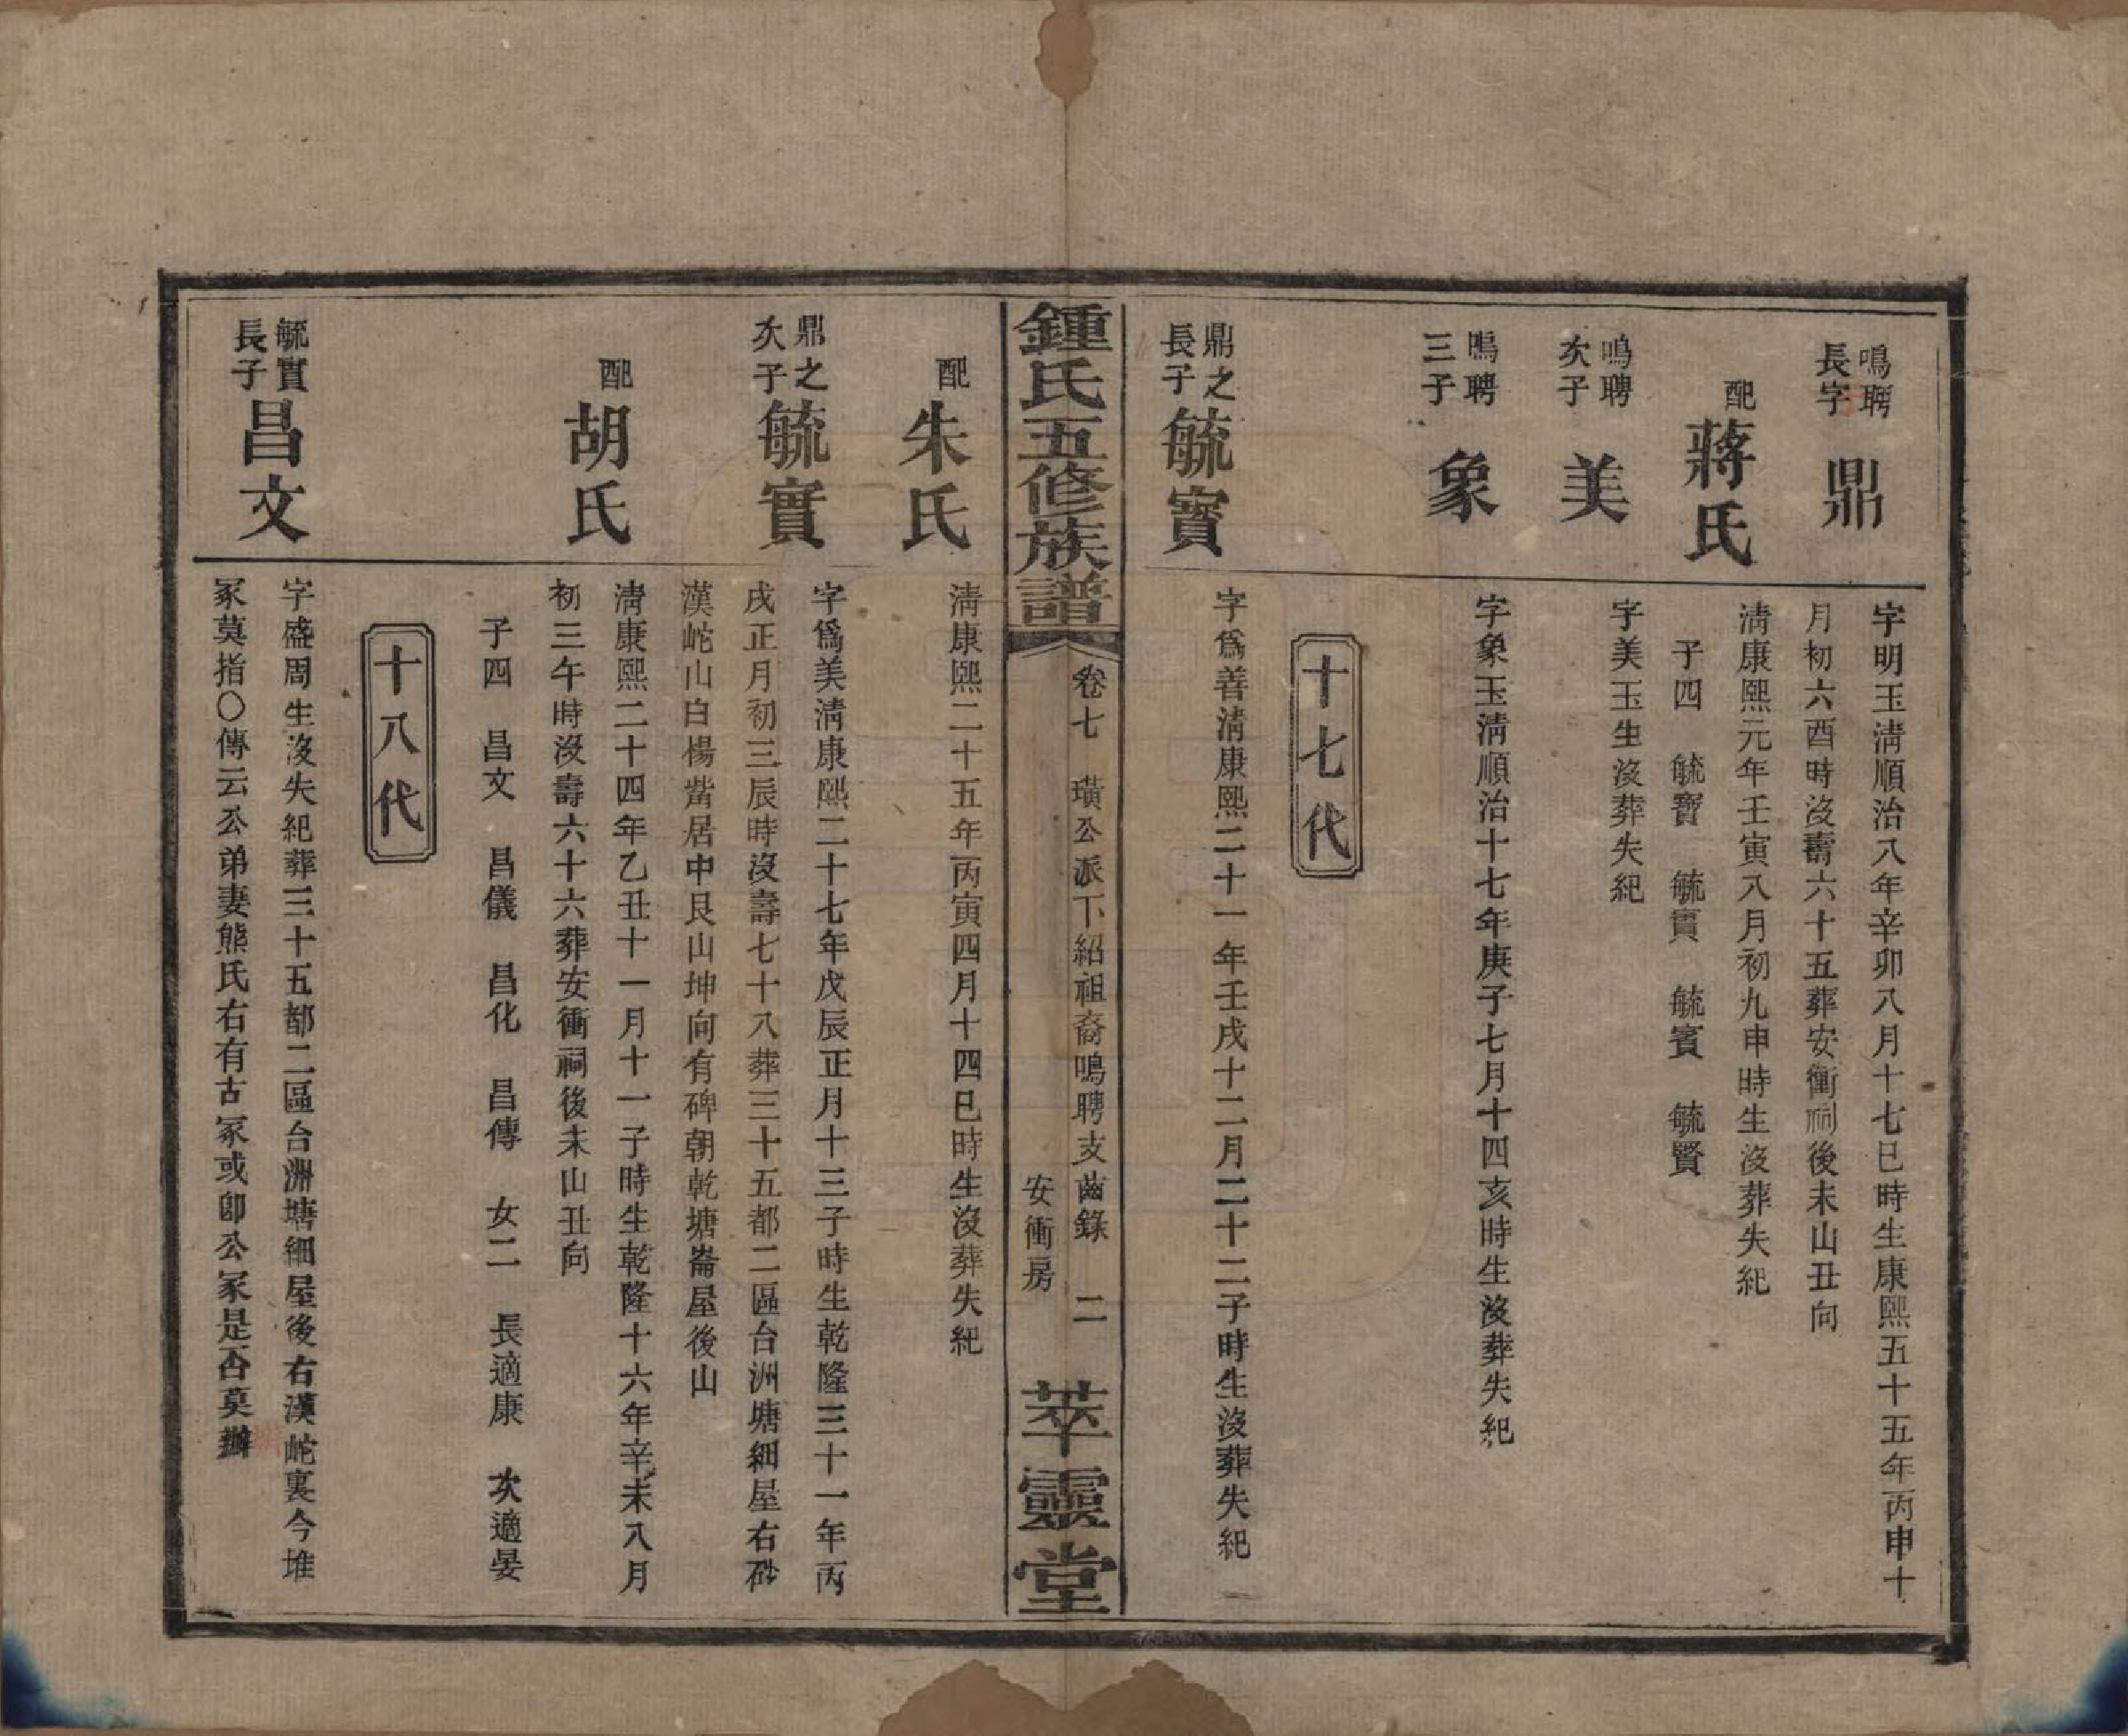 鳴聘
長字
鼎
字明玉淸順治八年辛卯八月十七巳時生康熙五十五年丙申十
月初六酉時沒壽六十五葬安衝祠後未山丑向
配
蔣氏
淸康熙元年壬寅八月初九申時生沒葬失紀
子四　毓寶　毓實　毓賓　毓賢
鳴聘
次子
美
字美玉生沒葬失紀
鳴聘
三子
象
字象玉淸順治十七年庚子七月十四亥時生沒葬失紀
十七代
鼎之
長子
毓寶
字爲善淸康熙二十一年壬戌十二月二十二子時生沒葬失紀
鍾氏五修族譜
卷七　璜公派下紹祖裔鳴聘支齒錄　二
安衝房
萃靈堂
配
朱氏
淸康熙二十五年丙寅四月十四巳時生沒葬失紀
鼎之
次子
毓實
字爲美淸康熙二十七年戊辰正月十三子時生乾隆三十一年丙
戌正月初三辰時沒壽七十八葬三十五都二區台洲塘細屋右砂
漢岮山白楊嵴居中艮山坤向有碑朝乾塘崙屋後山
配
胡氏
淸康熙二十四年乙丑十一月十一子時生乾隆十六年辛未八月
初三午時沒壽六十六葬安衝祠後未山丑向
子四　昌文　昌儀　昌化　昌傳　女二　長適康　次適晏
十八代
毓實
長子
昌文
字盛周生沒失紀葬三十五都二區台洲塘細屋後右漢岮裏今堆
冢莫指〇傳云公弟妻熊氏右有古冢或卽公冢是否莫辦